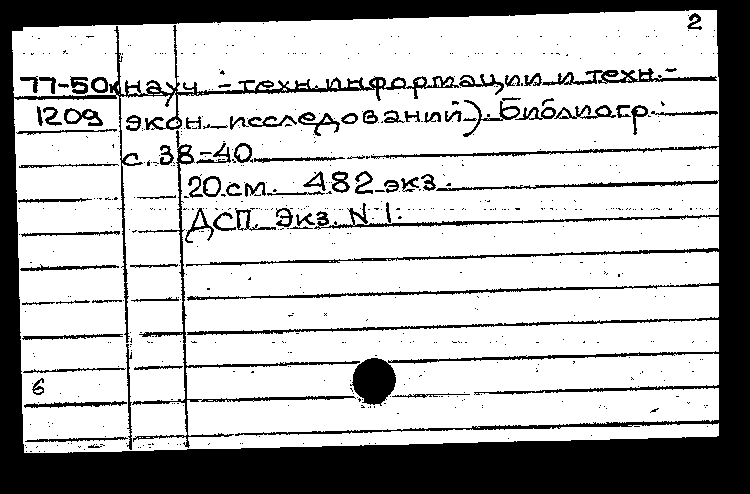 2
77-50к науч.-техн. информации и техн.-
1209 экон. исследований). Библиогр.:
с. 38-40
20 см. 482 экз.
ДСП. Экз. N 1.
6